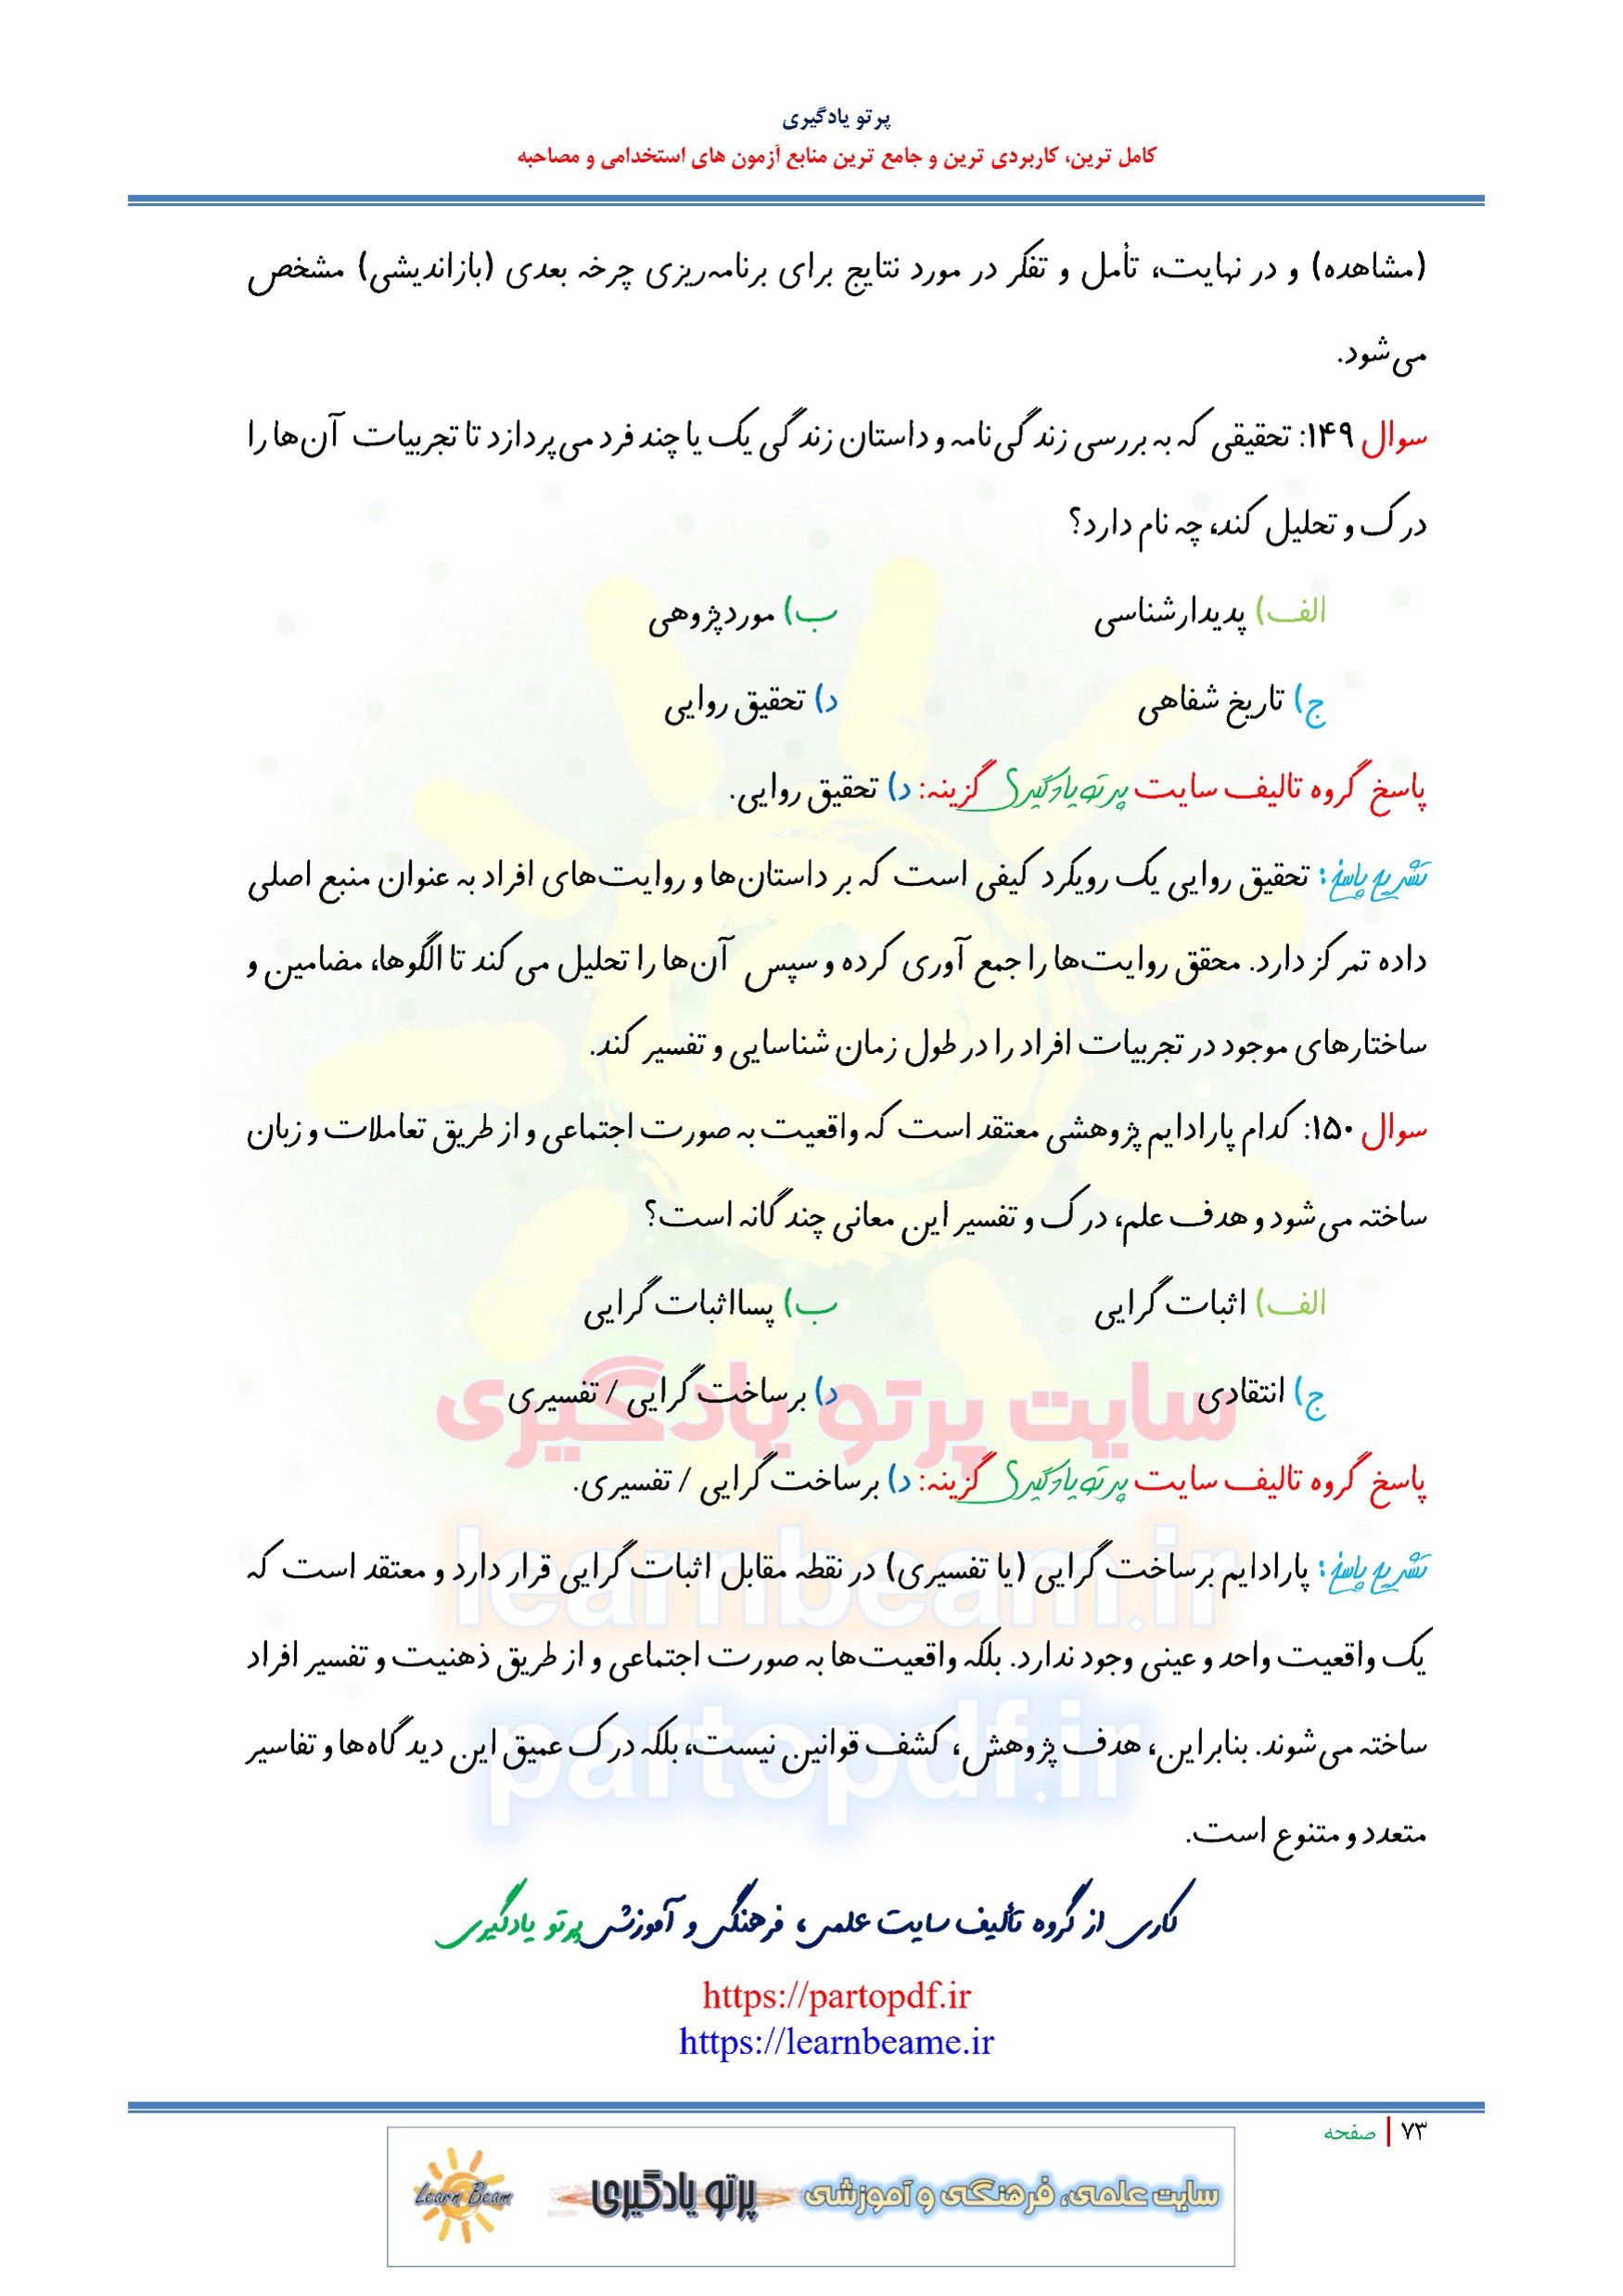 پرتو یادگیری
کامل ترین، کاربردی ترین و جامع ترین منابع آزمون های استخدامی و مصاحبه
(مشاهده) و در نهایت، تأمل و تفکر در مورد نتایج برای برنامه‌ریزی چرخه بعدی (بازاندیشی) مشخص
می‌شود.
سوال ۱۴۹: تحقیقی که به بررسی زندگی‌نامه و داستان زندگی یک یا چند فرد می‌پردازد تا تجربیات آن‌ها را
درک و تحلیل کند، چه نام دارد؟
الف) پدیدارشناسی ب) موردپژوهی
ج) تاریخ شفاهی د) تحقیق روایی
پاسخ گروه تالیف سایت پرتو یادگیری گزینه: د) تحقیق روایی.
تشریح پاسخ: تحقیق روایی یک رویکرد کیفی است که بر داستان‌ها و روایت‌های افراد به عنوان منبع اصلی
داده تمرکز دارد. محقق روایت‌ها را جمع آوری کرده و سپس آن‌ها را تحلیل می کند تا الگوها، مضامین و
ساختارهای موجود در تجربیات افراد را در طول زمان شناسایی و تفسیر کند.
سوال ۱۵۰: کدام پارادایم پژوهشی معتقد است که واقعیت به صورت اجتماعی و از طریق تعاملات و زبان
ساخته می‌شود و هدف علم، درک و تفسیر این معانی چندگانه است؟
الف) اثبات گرایی ب) پسااثبات گرایی
ج) انتقادی د) برساخت گرایی / تفسیری
پاسخ گروه تالیف سایت پرتو یادگیری گزینه: د) برساخت گرایی / تفسیری.
تشریح پاسخ: پارادایم برساخت گرایی (یا تفسیری) در نقطه مقابل اثبات گرایی قرار دارد و معتقد است که
یک واقعیت واحد و عینی وجود ندارد. بلکه واقعیت‌ها به صورت اجتماعی و از طریق ذهنیت و تفسیر افراد
ساخته می‌شوند. بنابراین، هدف پژوهش، کشف قوانین نیست، بلکه درک عمیق این دیدگاه‌ها و تفاسیر
متعدد و متنوع است.
سایت پرتو یادگیری
learnbeam.ir
partopdf.ir
کاری از گروه تألیف سایت علمی، فرهنگی و آموزشی پرتو یادگیری
https://partopdf.ir
https://learnbeame.ir
۷۳ | صفحه
سایت علمی، فرهنگی و آموزشی پرتو یادگیری Learn Beam